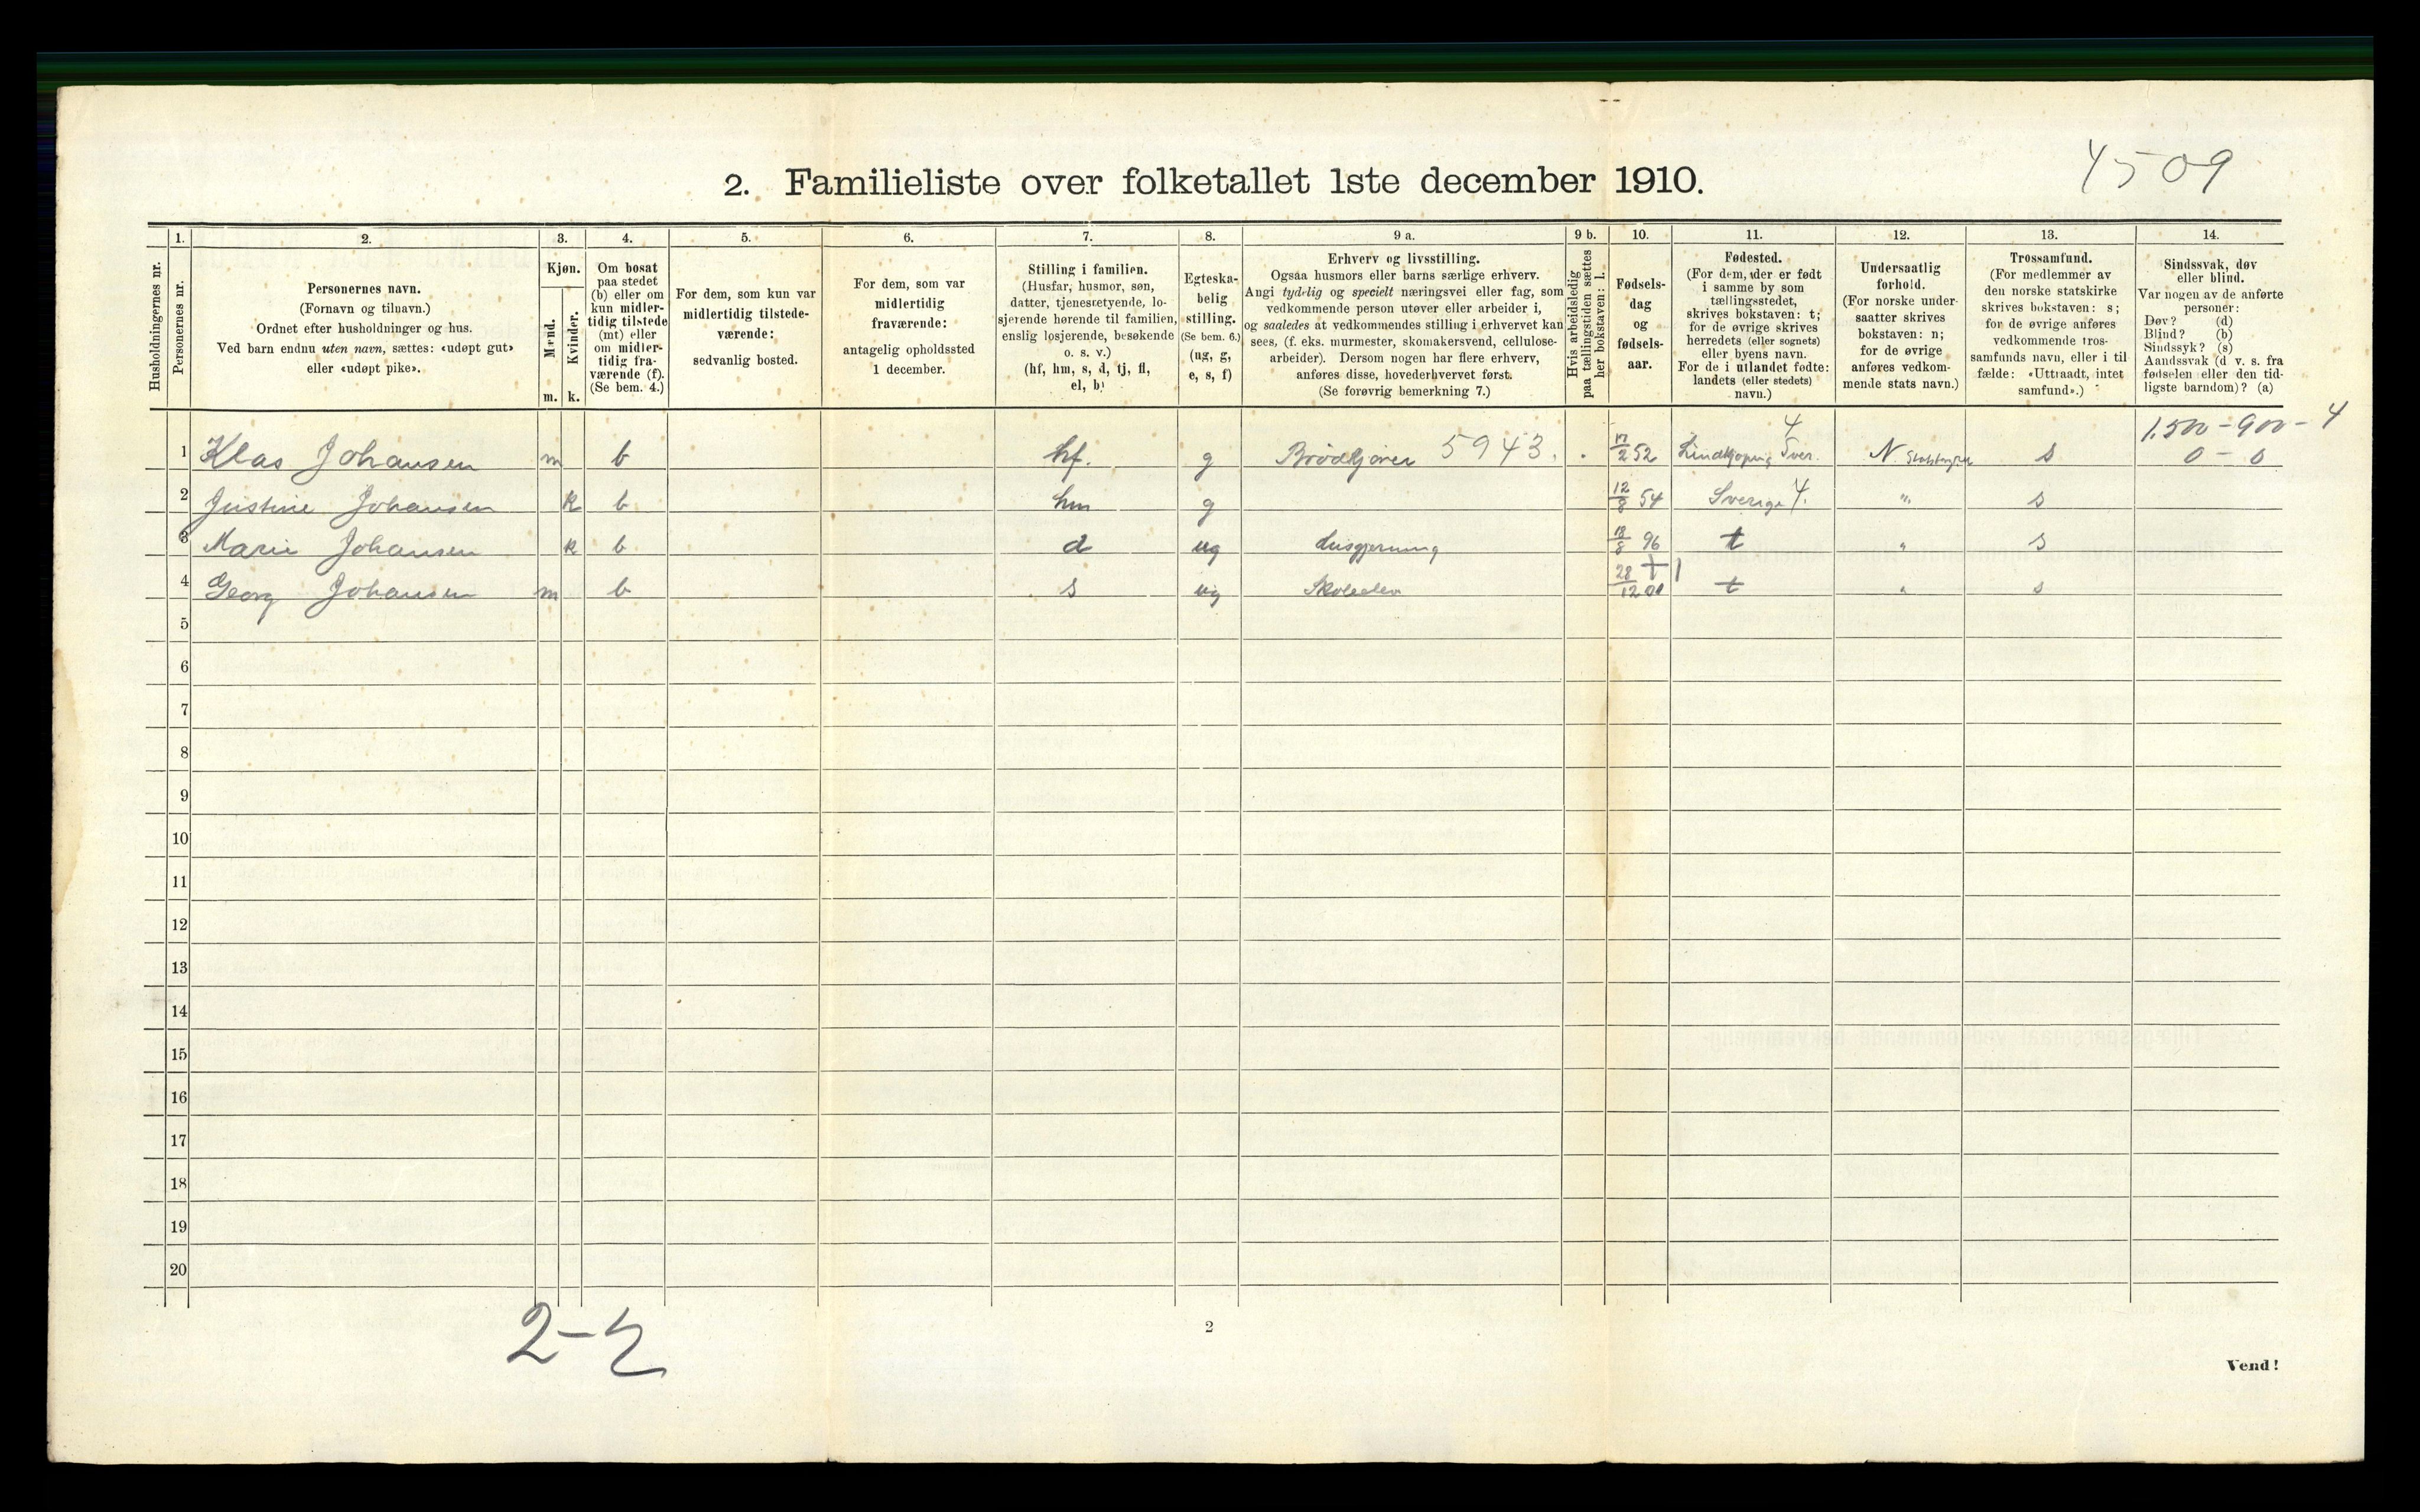 4509
2. Familieliste over folketallet 1ste december 1910.
Husholdningernes nr.
1. Personernes nr.
2. Personernes navn.
(Fornavn og tilnavn.)
Ordnet efter husholdninger og hus.
Ved barn endnu uten navn, sættes: «udøpt gut»
eller «udøpt pike».
3. Kjøn.
Mænd. m.
Kvinder. k.
4. Om bosat
paa stedet
(b) eller om
kun midler-
tidig tilstede
(mt) eller
om midler-
tidig fra-
værende (f).
(Se bem. 4.)
5. For dem, som kun var
midlertidig tilstede-
værende:
sedvanlig bosted.
6. For dem, som var
midlertidig
fraværende:
antagelig opholdssted
1 december.
7. Stilling i familien.
(Husfar, husmor, søn,
datter, tjenestetyende, lo-
sjerende hørende til familien,
enslig losjerende, besøkende
o. s. v.)
(hf, hm, s, d, tj, fl,
el, b)
8. Egteska-
belig
stilling.
(Se bem. 6.)
(ug, g,
e, s, f)
9 a. Erhverv og livsstilling.
Ogsaa husmors eller barns særlige erhverv.
Angi tydelig og specielt næringsvei eller fag, som
vedkommende person utøver eller arbeider i,
og saaledes at vedkommendes stilling i erhvervet kan
sees, (f. eks. murmester, skomakersvend, cellulose-
arbeider). Dersom nogen har flere erhverv,
anføres disse, hovederhvervet først.
(Se forøvrig bemerkning 7.)
9 b. Hvis arbeidsledig
paa tællingstiden sættes
her bokstaven: l.
10. Fødsels-
dag
og
fødsels-
aar.
11. Fødested.
(For dem, der er født
i samme by som
tællingsstedet,
skrives bokstaven: t;
for de øvrige skrives
herredets (eller sognets)
eller byens navn.
For de i utlandet fødte:
landets (eller stedets)
navn.)
12. Undersaatlig
forhold.
(For norske under-
saatter skrives
bokstaven: n;
for de øvrige
anføres vedkom-
mende stats navn.)
13. Trossamfund.
(For medlemmer av
den norske statskirke
skrives bokstaven: s;
for de øvrige anføres
vedkommende tros-
samfunds navn, eller i til
fælde: «Uttraadt, intet
samfund».)
14. Sindssvak, døv
eller blind.
Var nogen av de anførte
personer:
Døv? (d)
Blind? (b)
Sindssyk? (s)
Aandssvak (d. v. s. fra
fødselen eller den tid-
ligste barndom)? (a)
4 1.500 - 900 - 4
1 Klas Johansen m b hf. g Brødkjører 5943. 17/2 52 Lindkjøping Sver. N s 0 - 0
2 Justine Johansen k b hm g 12/8 54 Sverige 4. " s
3 Marie Johansen k b d ug Husgjerning 18/8 96 t " s
4 Georg Johansen m b s ug Skoleelev 28/12 01 t " s
5
6
7
8
9
10
11
12
13
14
15
16
17
18
19
20
2-2
2
Vend!